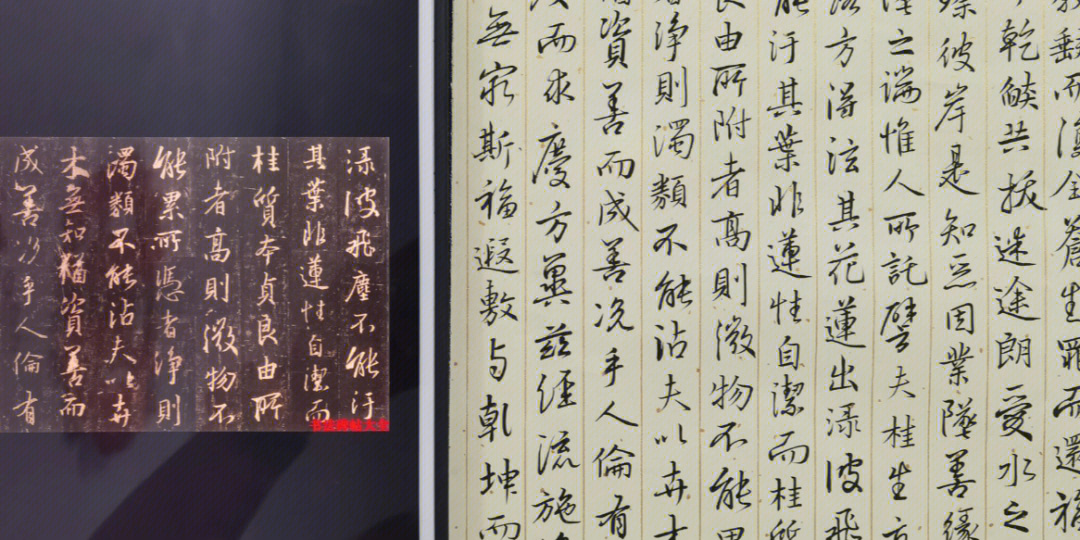 渌波飛塵不能汙
其葉非蓮性自潔而
桂質本貞良由所
附者高則微物不
能累所憑者淨則
濁類不能沾夫以卉
木無知猶資善而
成善況乎人倫有
翻而復全蒼生罪而還福
乾燄共拔迷途朗愛水之
彼岸是知惡因業墜善緣
之端惟人所託譬夫桂生
方得泫其花蓮出渌波飛
能汙其葉非蓮性自潔而桂質
良由所附者高則微物不能累
淨則濁類不能沾夫以卉木
資善而成善況乎人倫有
而求慶方冀茲經流施
無窮斯福遐敷与乾坤而